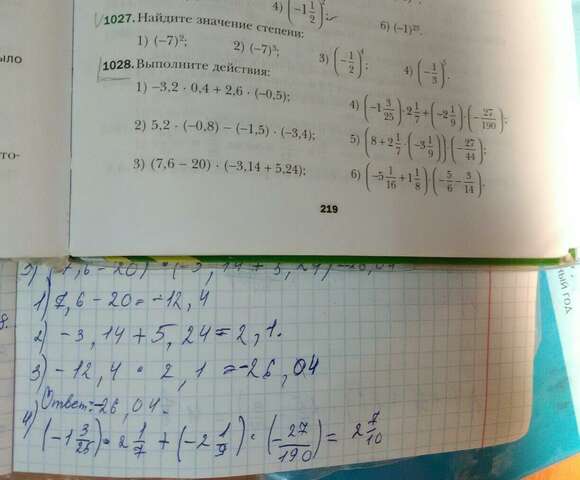 4) (-1 1/2)²;
6) (-1)²⁵.
1027. Найдите значение степени:
1) (-7)²; 2) (-7)³; 3) (-1/2)⁴; 4) (-1/3)⁵.
1028. Выполните действия:
1) -3,2 · 0,4 + 2,6 · (-0,5);
2) 5,2 · (-0,8) - (-1,5) · (-3,4);
3) (7,6 - 20) · (-3,14 + 5,24);
4) (-1 3/25) · 2 1/7 + (-2 1/9) · (-27/190);
5) (8 + 2 1/7 · (-3 1/9)) · (-27/44);
6) (-5 1/16 + 1 1/8) · (-5/6 - 3/14).
219
ыло
то-
ный год
3) (7,6-20) · (-3,14+5,24)=-26,04
1) 7,6-20=-12,4
2) -3,14+5,24=2,1.
3) -12,4 · 2,1=-26,04
Ответ:-26,04.
4)
(-1 3/25) · 2 1/7 + (-2 1/9) · (-27/190) = 2 7/10